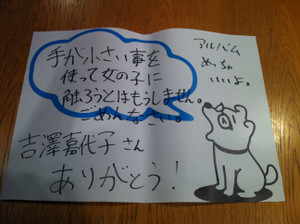 手が小さい事を
使って女の子に
触ろうとはもうしません。
ごめんなさい。
アルバム
めっちゃ
いいよ。
吉澤嘉代子さん
ありがとう！